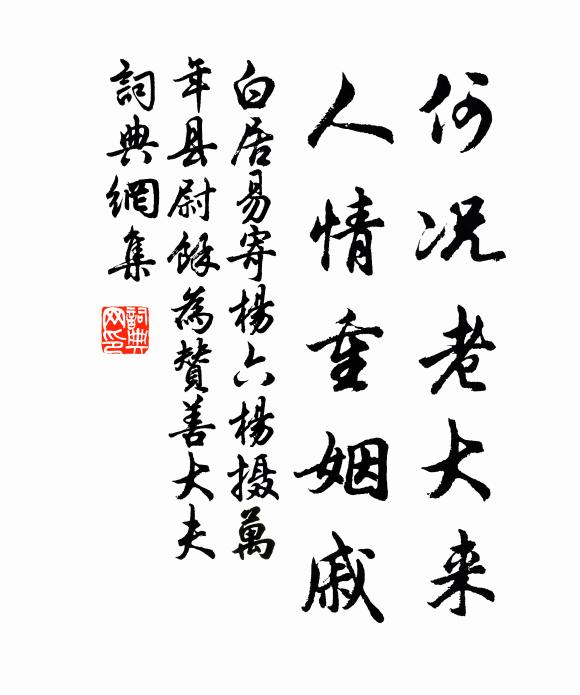 何况老大来
人情重姻戚
白居易寄楊六楊摄萬
年县尉餘為贊善大夫
詞典網集
詞典网印